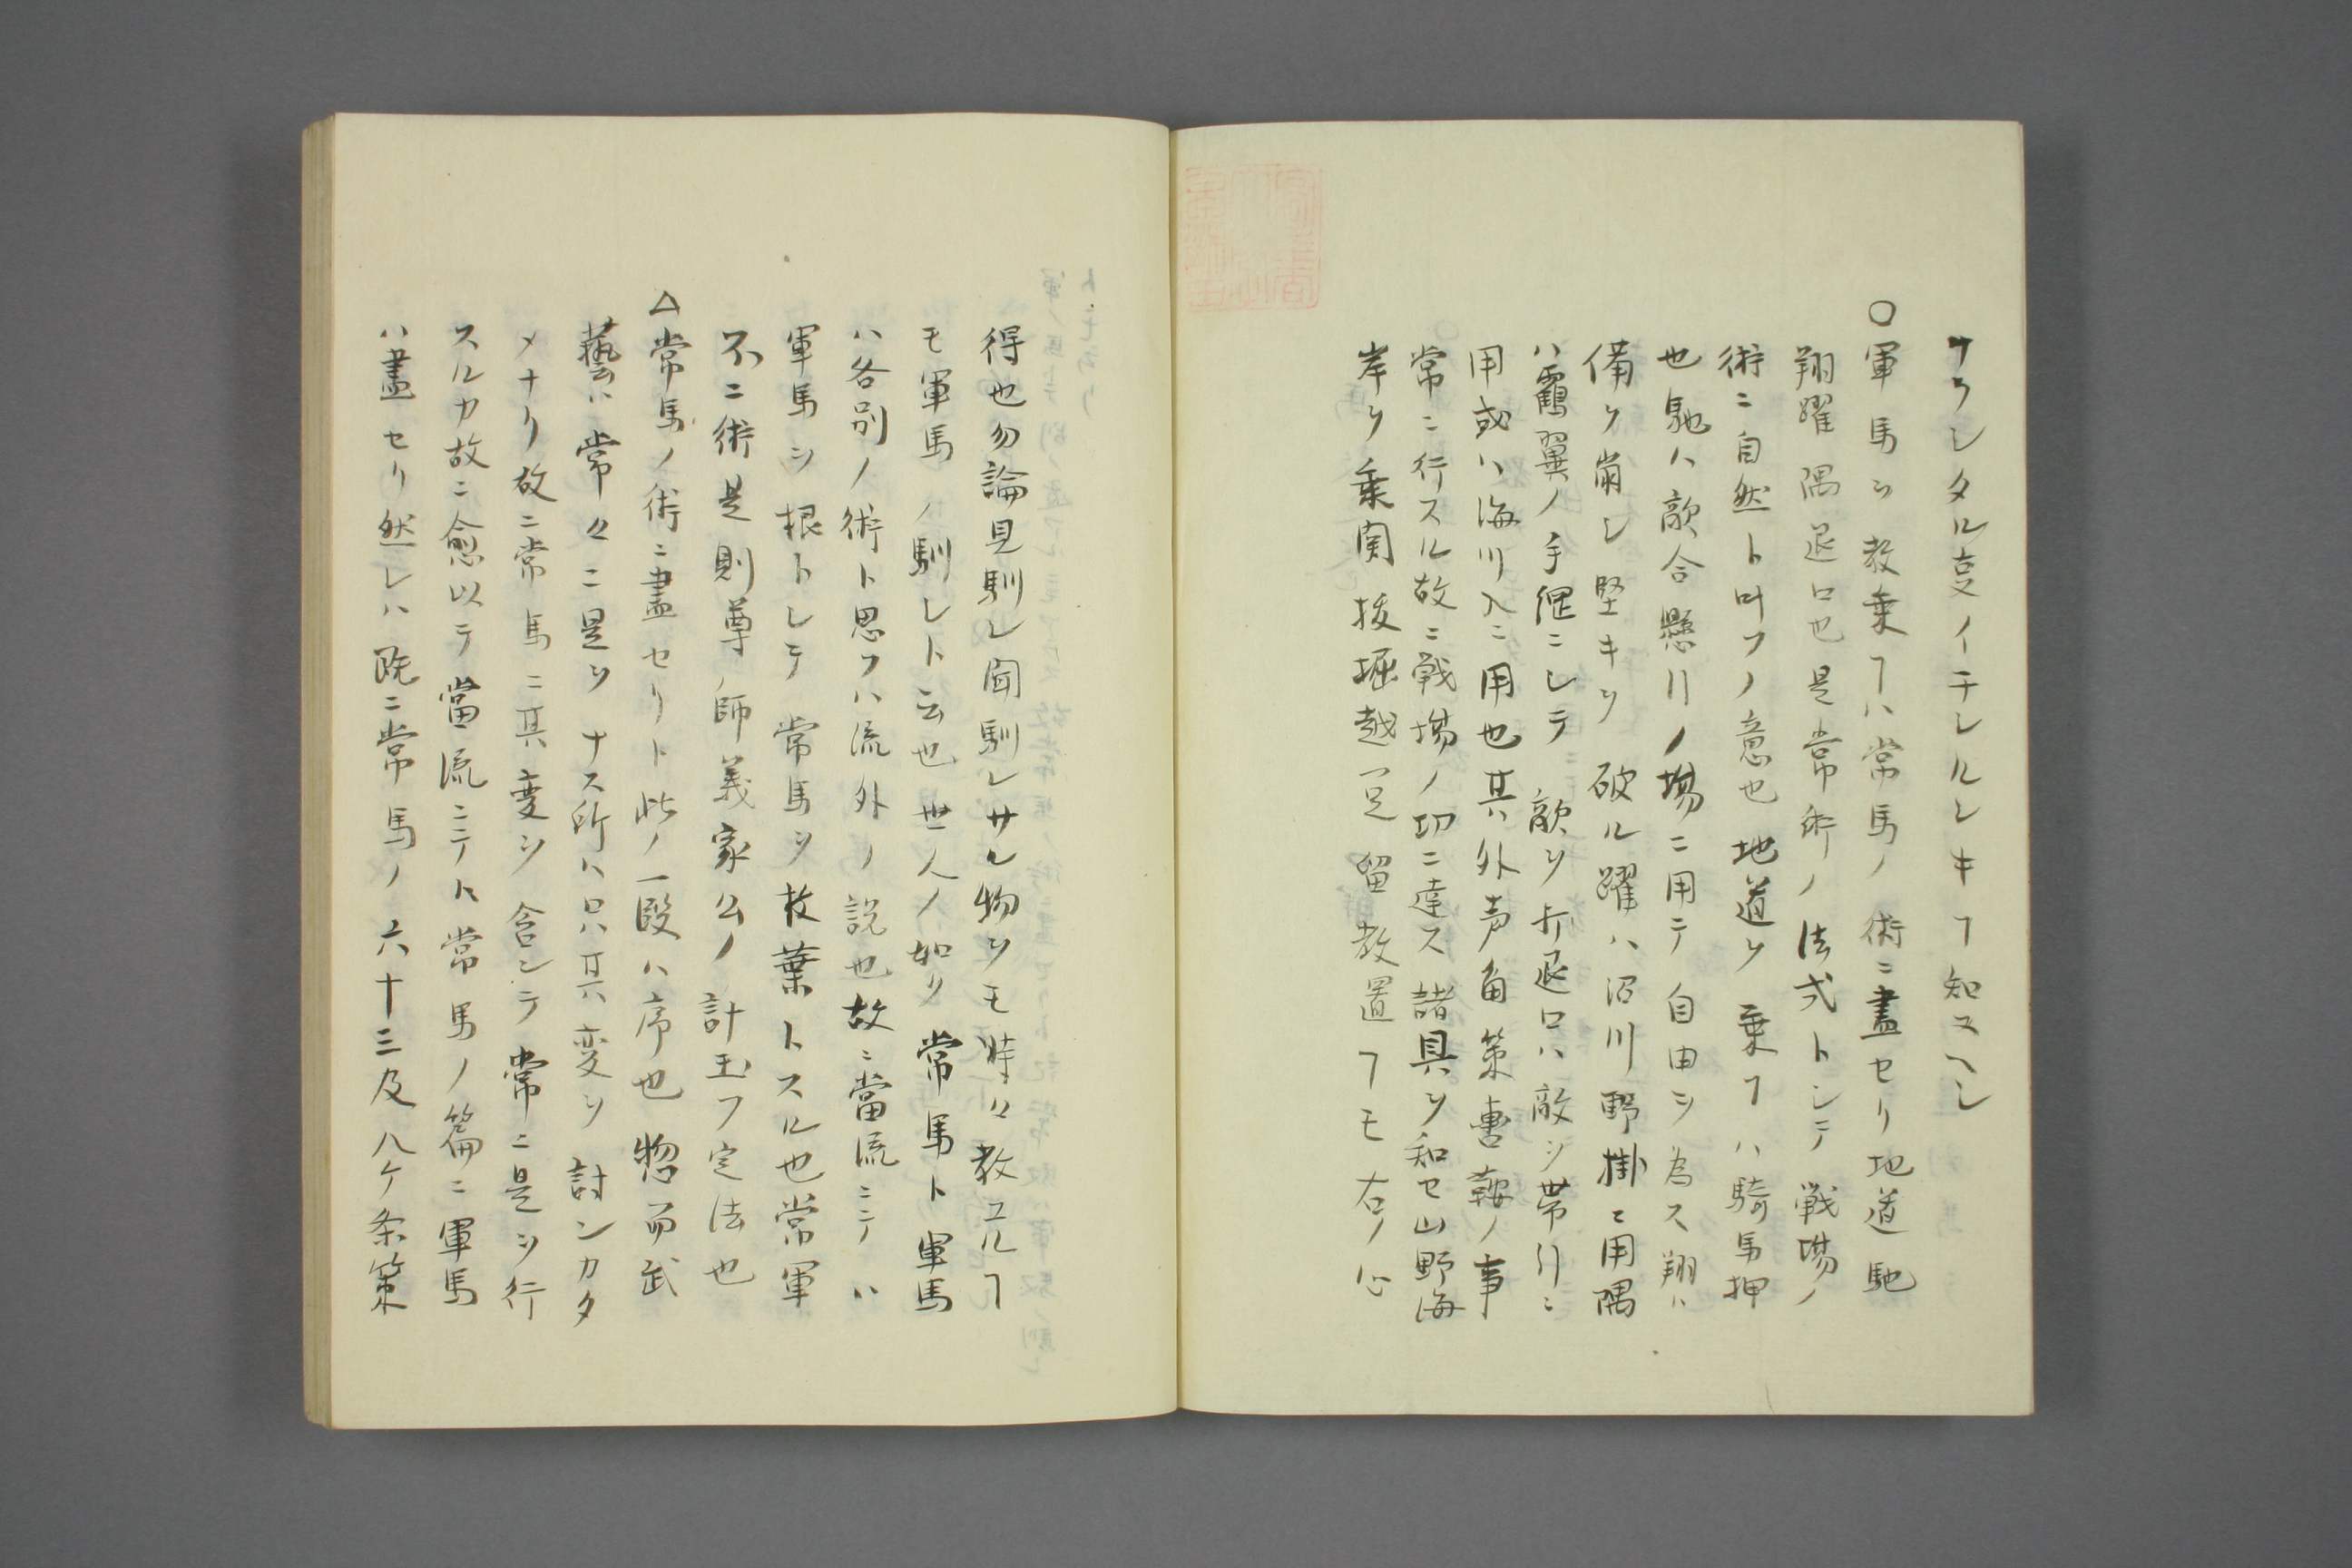 ナラシタル叓イチシルシキヿ知ヌヘシ
○軍馬ヲ教乗ヿハ常馬ノ術ニ盡セリ地道馳
翔躍隅退口也是常術ノ法式トシテ戦場ノ
術ニ自然ト叫フノ意也地道ヲ乗ヿハ騎馬押
也馳ハ敵合懸引ノ場ニ用テ自由ヲ為ス翔ハ
備ヲ崩シ堅キヲ破ル躍ハ沼川野掛ニ用隅
ハ靏翼ノ手裡ニシテ敵ヲ折退口ハ敵ヲ帯引ニ
用或ハ海川入ニ用也其外声角策轡鞍ノ事
常ニ行スル故ニ戦場ノ切ニ達ス諸具ヲ和セ山野海
岸ヲ乗関抜堀越一足留教置ヿモ右ノ心
得也勿論見馴レ聞馴レサル物ヲモ時々教ユルヿ
モ軍馬ノ馴レト云也世人ノ如ク常馬ト軍馬
ハ各別ノ術ト思フハ流外ノ説也故ニ當流ニテハ
軍馬ヲ根トレテ常馬ヲ枝葉トスル也常軍
不二術是則尊師義家公ノ計玉フ定法也
△常馬ノ術ニ盡セリト此ノ一段ハ序也惣而武
藝ハ常々ニ是ヲナス所ハ只其変ヲ討ンカタ
メナリ故ニ常馬ニ其変ヲ含ンテ常ニ是ヲ行
スルカ故ニ愈以テ當流ニテハ常馬ノ篇ニ軍馬
ハ盡セリ然レハ既ニ常馬ノ六十三及八ケ条策